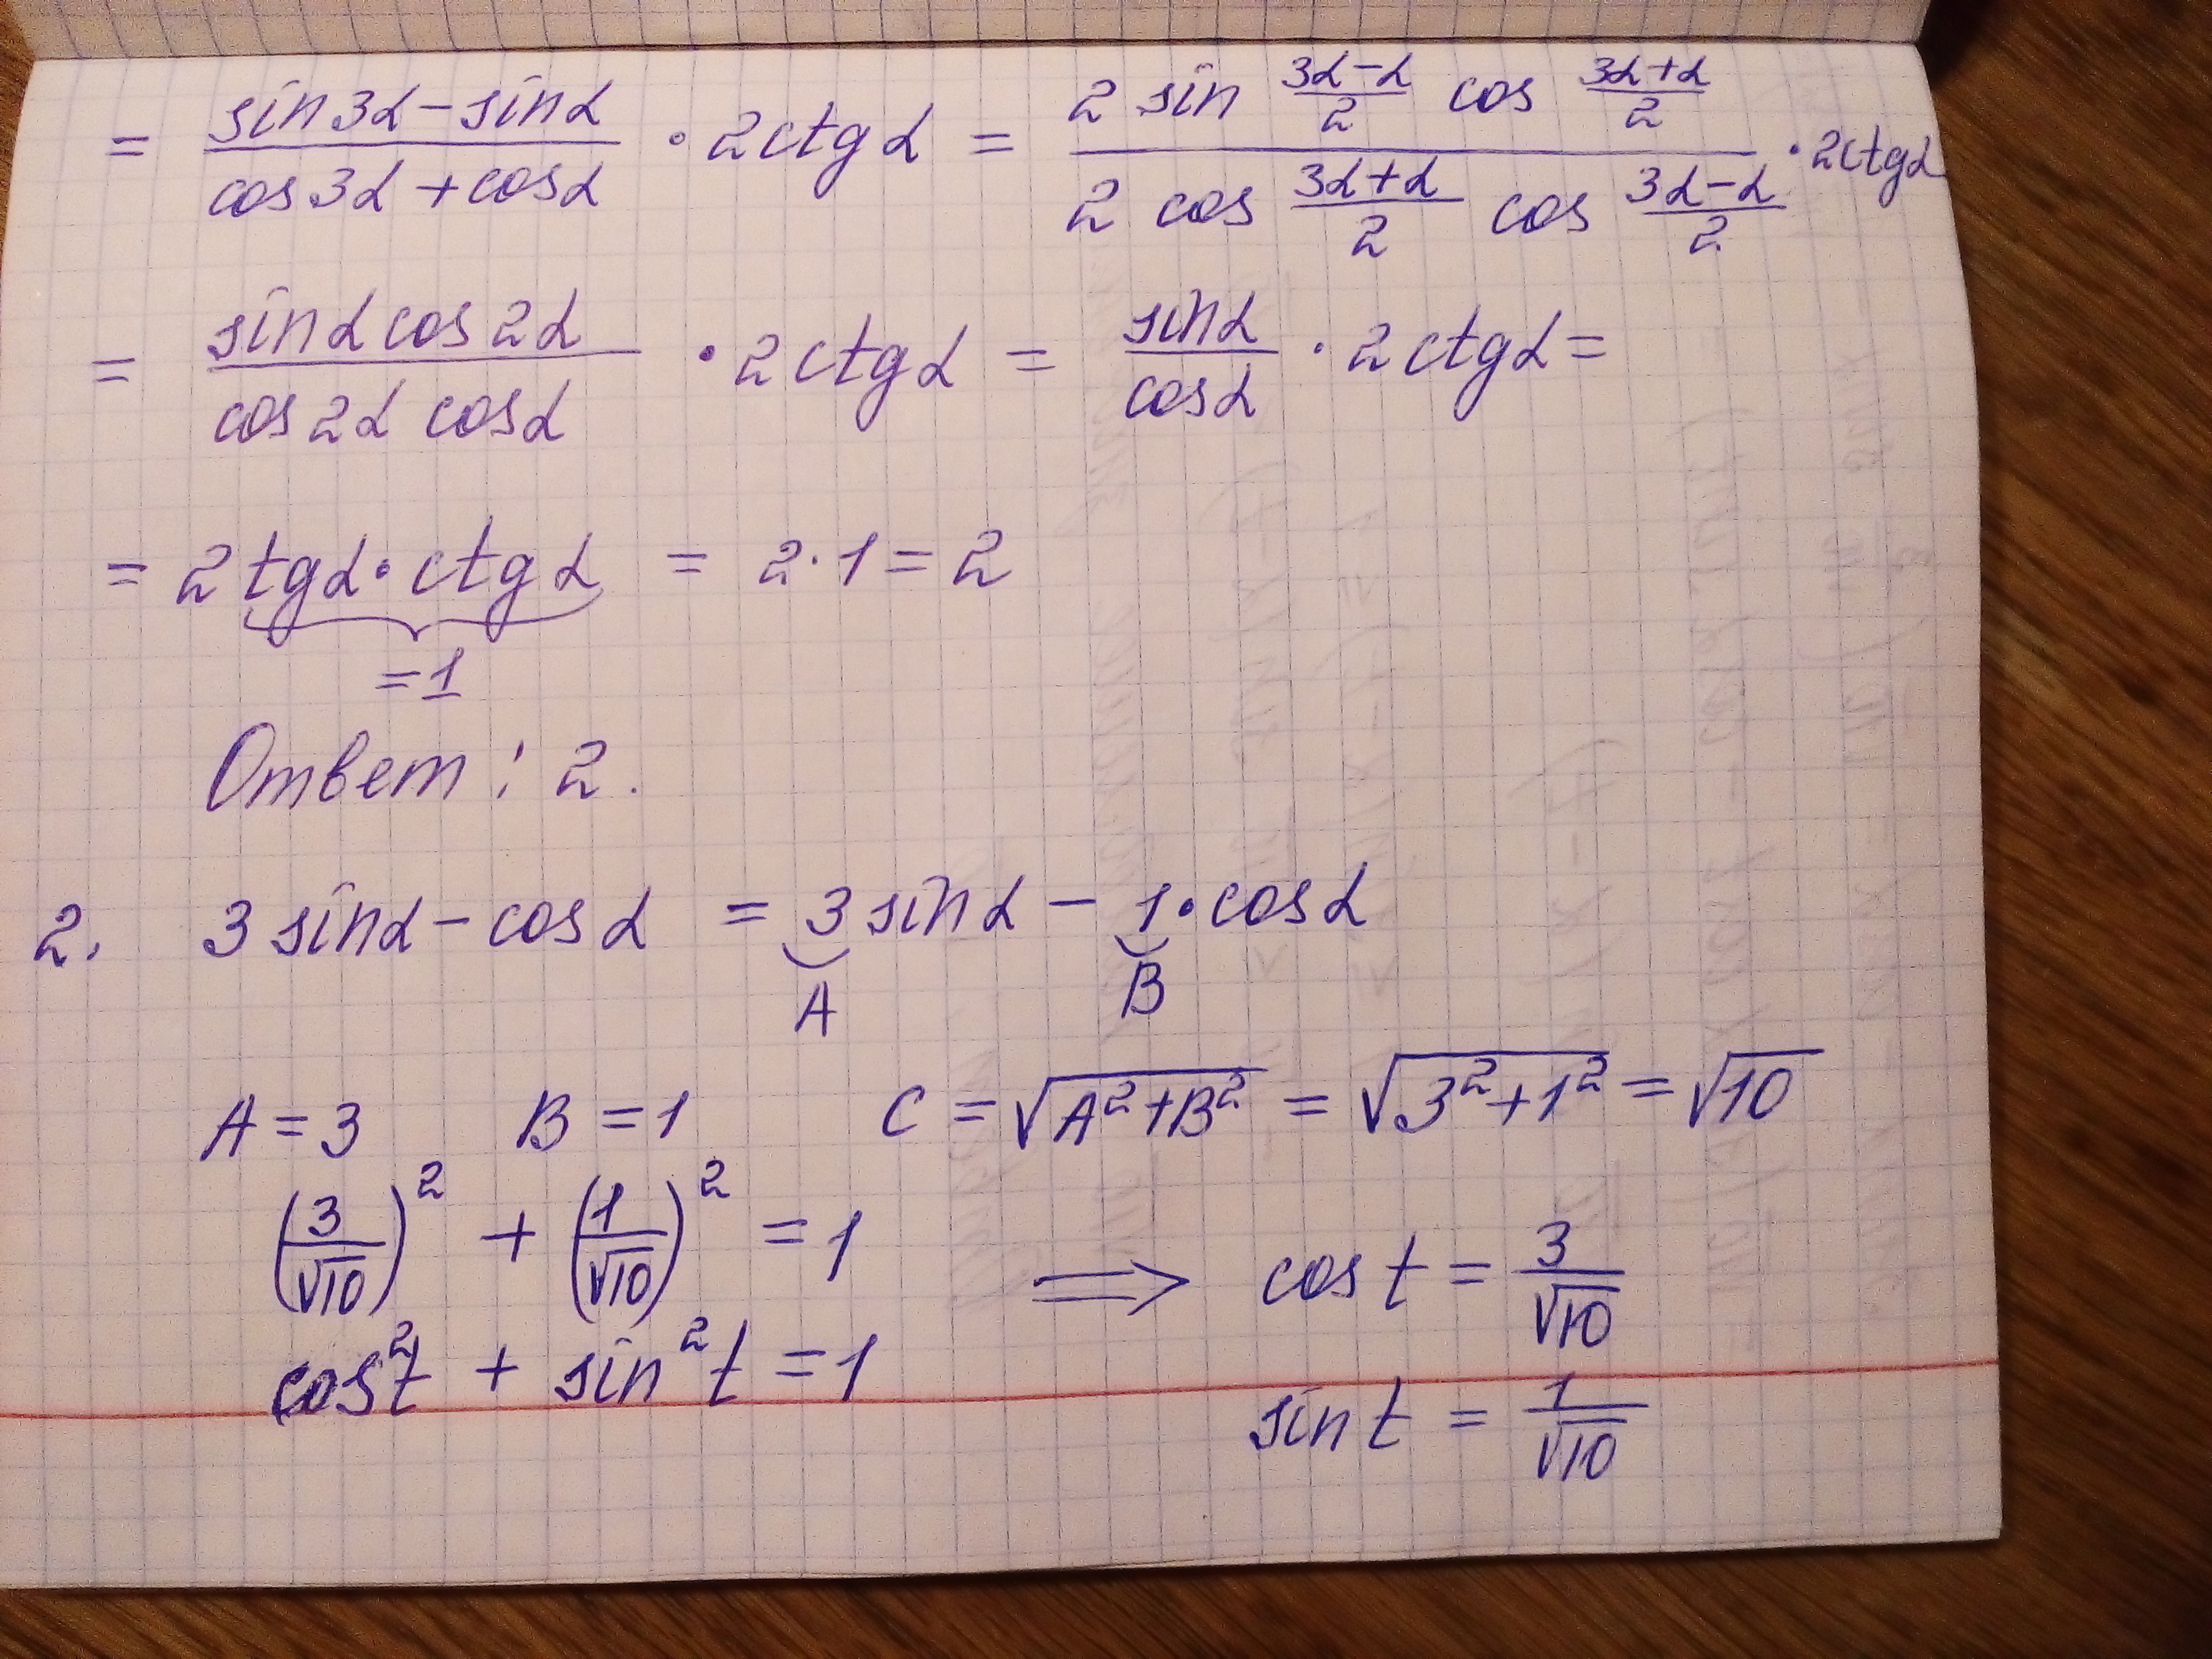 = (sin3α − sinα)/(cos3α + cosα) · 2ctgα = (2 sin (3α−α)/2 cos (3α+α)/2)/(2 cos (3α+α)/2 cos (3α−α)/2) · 2ctgα
= (sinα cos2α)/(cos2α cosα) · 2ctgα = sinα/cosα · 2ctgα =
= 2tgα · ctgα = 2·1 = 2
=1
Ответ: 2.
2. 3 sinα − cosα = 3 sinα − 1·cosα
A B
A = 3 B = 1 C = √(A²+B²) = √(3²+1²) = √10
(3/√10)² + (1/√10)² = 1 ⟹ cos t = 3/√10
cos²t + sin²t = 1
sin t = 1/√10